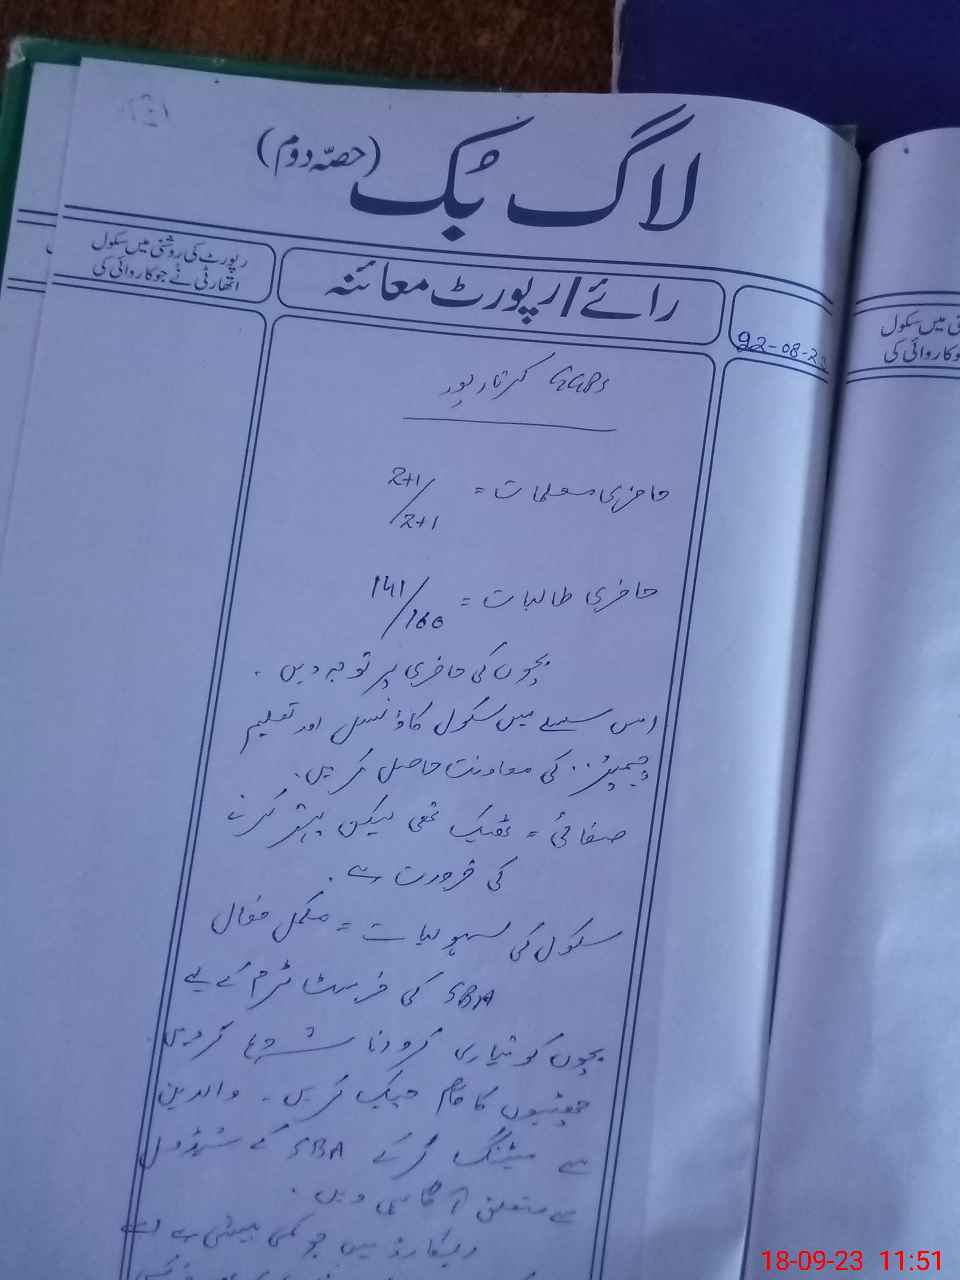 لاگ بُک (حصّہ دوم)
رائے/رپورٹ معائنہ
رپورٹ کی روشنی میں سکول
اتھارٹی نے جو کاروائی کی
22-08-2
GGPS کرتارپور
حاضری معلمات = 2+1/2+1
حاضری طالبات = 141/160
بچوں کی حاضری پر توجہ دیں ۔
اس سلسلے میں سکول کاؤنسل اور تعلیم
چیمپئز کی معاونت حاصل کریں ۔
صفائی = ٹھیک تھی لیکن بہتر کرنے
کی ضرورت ہے ۔
سکول کی سہولیات = مکمل فعال
SBA کی فرسٹ ٹرم کے لیے
بچوں کو تیاری کروانا شروع کر دیں
چھٹیوں کا کام چیک کریں ۔ والدین
سے میٹنگ کر کے SBA کے شیڈول
سے متعلق آگاہی دیں ۔
ریکارڈ میں جو کمی بیشی ہے اسے
ں میں سکول
وکاروائی کی
18-09-23 11:51